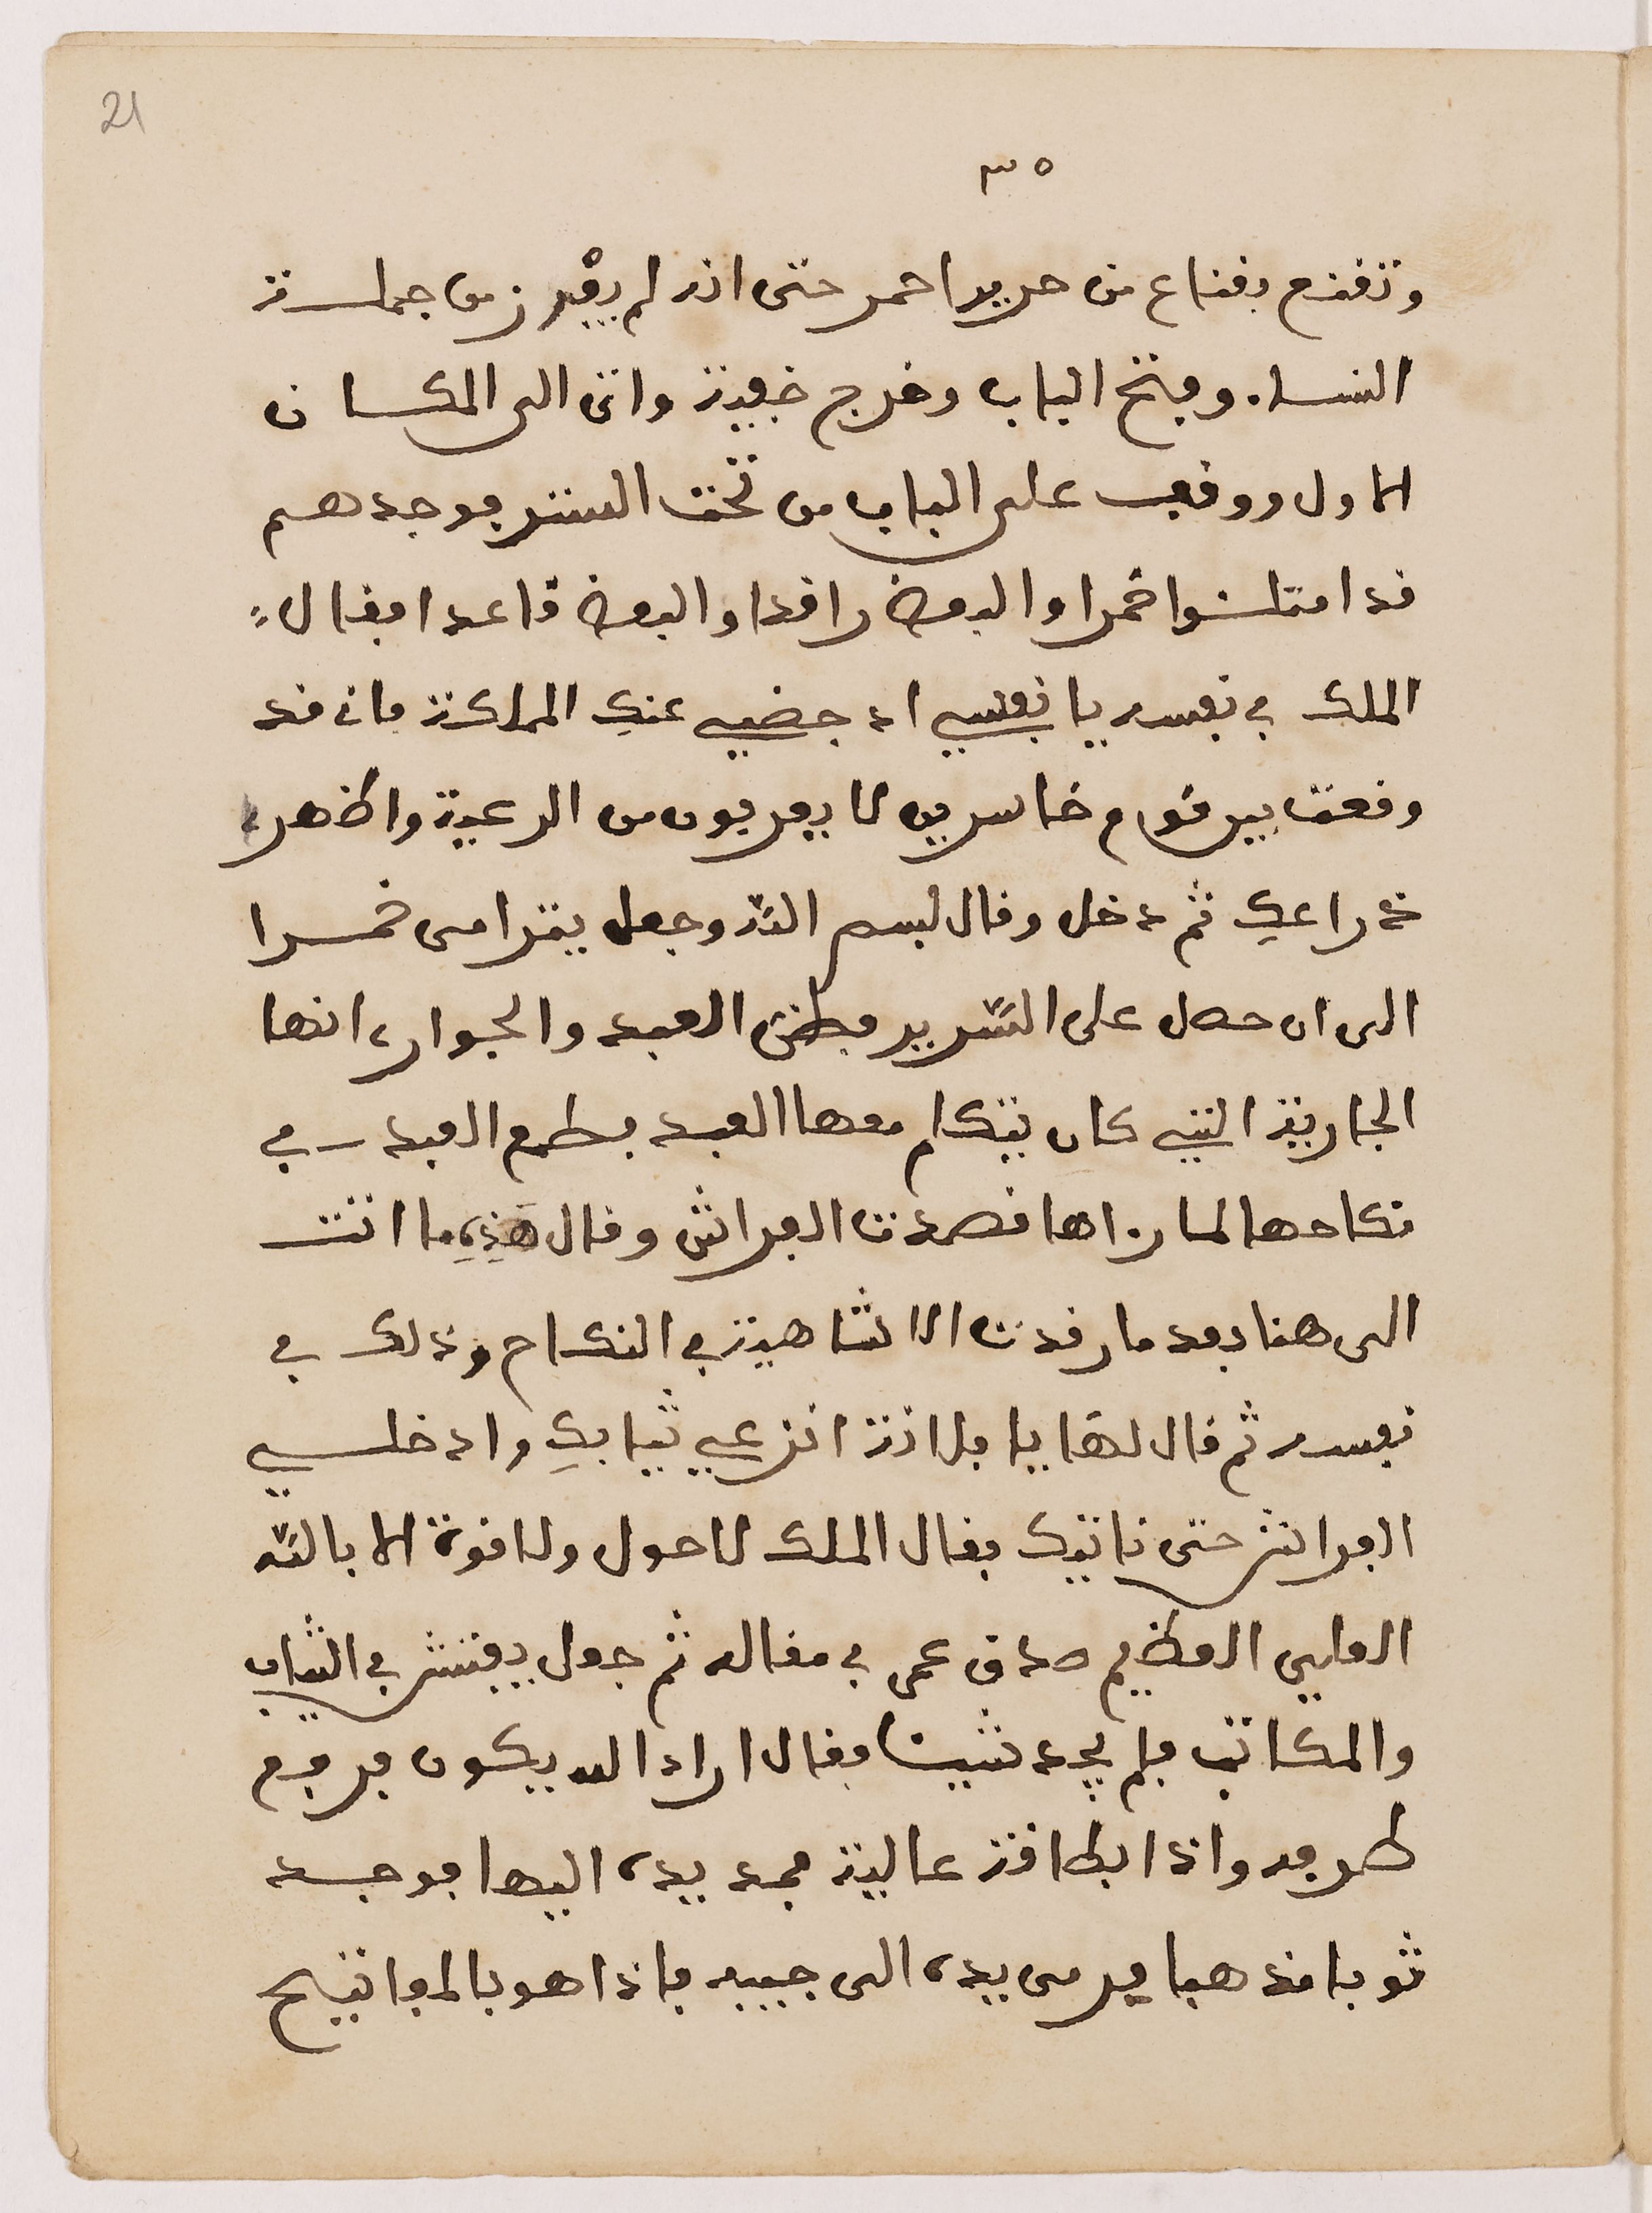 21
٣٥
وتقنع بقناع من حرير احمر حتى انه لم يفرز من جملة
النساء. وفتح الباب وخرج خفية واتى الى المكان
الاول ووقف على الباب من تحت الستر فوجدهم
قد امتلئوا خمرا والبعض راقدا والبعض قاعدا فقال
الملك في نفسه يا نفسي ادحضي عنكِ المملكة فانه قد
وقعت بير قوم خاسرين لا يعرفون من الرعية واظهر
خداعك ثم دخل وقال بسم الله وجعل يترامى خمرا
الى ان حصل على السّرير فظن العبد والجوار، انها
الجارية التي كان يتكلم معها العبد بطمع العبد في
نكاحها لما رءاها قصدت الفراش وقال هذه ما اتت
الى هنا بعد ما رقدت الا لشاهية في النكاح وذلك في
نفسه ثم قال لها يا فلانة انزعي ثيابكِ وادخلي
الفراش حتى ناتيك فقال الملك لا حول ولا قوة الا بالله
العلي العظيم صدق عمى في مقاله ثم جعل يفتش في الثياب
والمكاتب فلم يجد شيئا فقال اراد الله يكون فرفع
طرفه واذا بطاقة عالية فمد يده اليها فوجد
ثوبا مذهبا فرمى يده الى جيبه فاذا هو بالمفاتيح